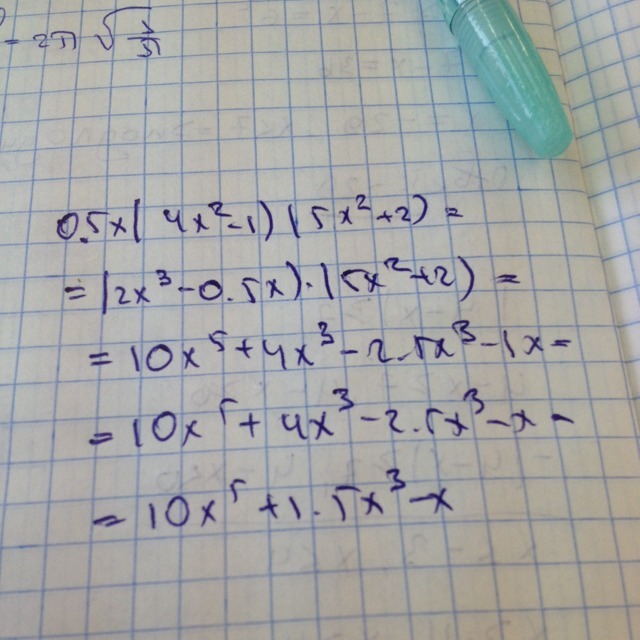 = 2π √
0.5x(4x²-1)(5x²+2) =
= (2x³-0.5x)·(5x²+2) =
= 10x⁵+4x³-2.5x³-1x=
= 10x⁵+4x³-2.5x³-x=
= 10x⁵+1.5x³-x